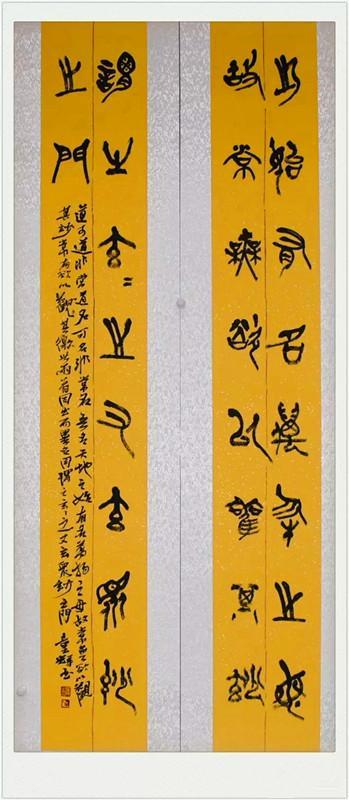 之始有名萬物之母
故常無欲以觀其妙
謂之玄〻之又玄眾妙
之門
道可道非常道名可名非常名無名天地之始有名萬物之母故常無欲以觀
其妙常有欲以觀其徼此兩者同出而異名同謂之玄〻之又玄眾妙之門